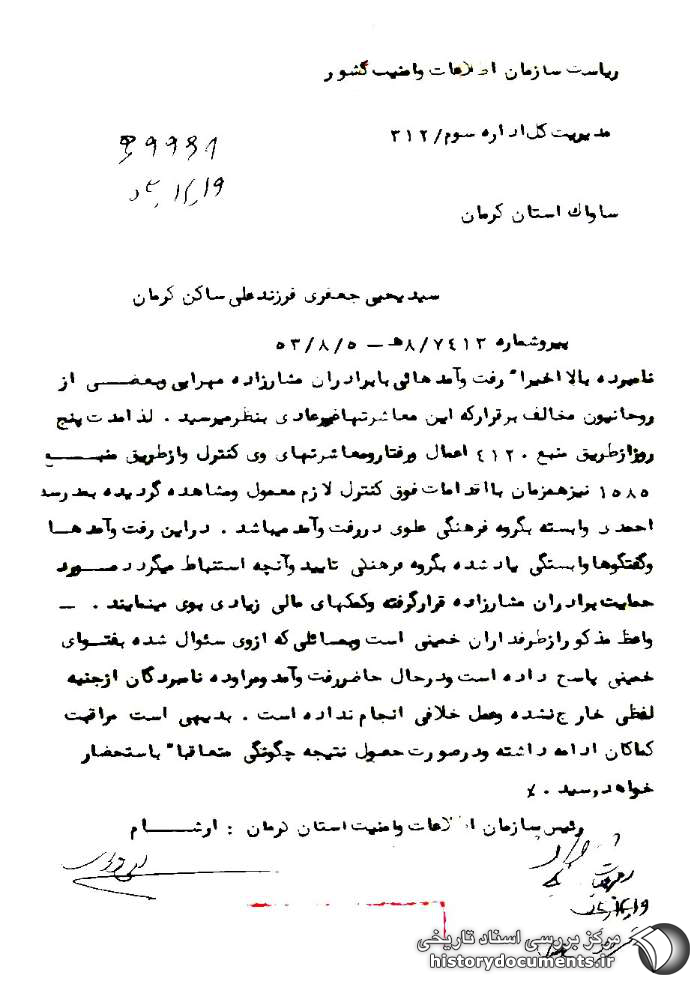 ریاست سازمان اطلاعات وامنیت کشور
مدیریت کل اداره سوم/۳۱۲
ساواك استان کرمان
سیدیحیی جعفری فرزندعلی ساکن کرمان
پیروشماره ۸/۷٤۱۳هـ – ۵۳/۸/۵
نامبرده بالا اخیرا" رفت وآمدهائی بابرادران مشارزاده مهرابی وبعضی از
روحانیون مخالف برقرارکه این معاشرتهاغیرعادی بنظرمیرسید . لذامدت پنج
روزازطریق منبع ٤۱۲۰ اعمال ورفتارومعاشرتهای وی کنترل وازطریق منبع
۱۵۸۵ نیزهمزمان بااقدامات فوق کنترل لازم معمول ومشاهده گردیده بمدرسه
احمدی وابسته بگروه فرهنگی علوی دررفت وآمد میباشد . دراین رفت وآمدها
وگفتگوها وابستگی یاد شده بگروه فرهنگی تایید وآنچه استنباط میگردد مورد
حمایت برادران مشارزاده قرارگرفته وکمکهای مالی زیادی بوی مینمایند . –
واعظ مذکورازطرفداران خمینی است وبمسائلی که ازوی سئوال شده بفتوای
خمینی پاسخ داده است ودرحال حاضررفت وآمد ومراوده نامبردگان ازجنبه
لفظی خارج نشده وعمل خلافی انجام نداده است . بدیهی است مراقبت
کماکان ادامه داشته ودرصورت حصول نتیجه چگونگی متعاقبا" باستحضار
خواهدرسید . ٪
رئیس سازمان اطلاعات وامنیت استان کرمان : ارشام
مرکز بررسی اسناد تاریخی
historydocuments.ir